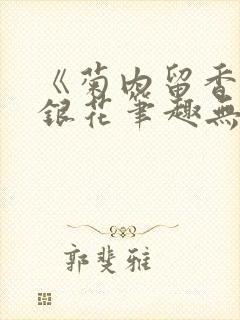 《菊内留香
銀花筆趣無
郭斐雅